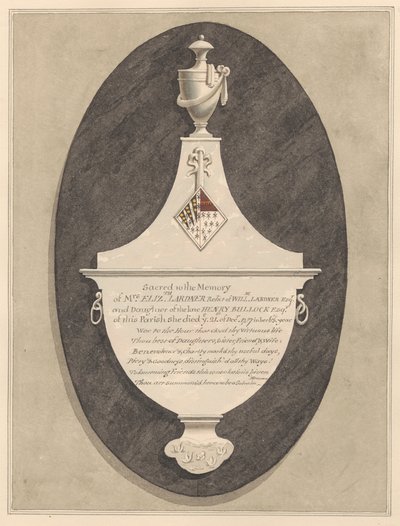 Sacred to the Memory
of Mrs. ELIZTH LARDNER Relict of WILLM LARDNER Esq.
and Daughter of the late HENRY BULLOCK Esqr.
of this Parish She died ye 21 of Decr. in her year
Woe to the Hour that clos'd thy Virtuous life
Thou best of Daughters, Sister, Friend & Wife
Benevolence & Charity mark'd thy useful days
Piety & Goodness distinguish'd all thy Ways
Friends this
Thou art Summon'd hence to be a